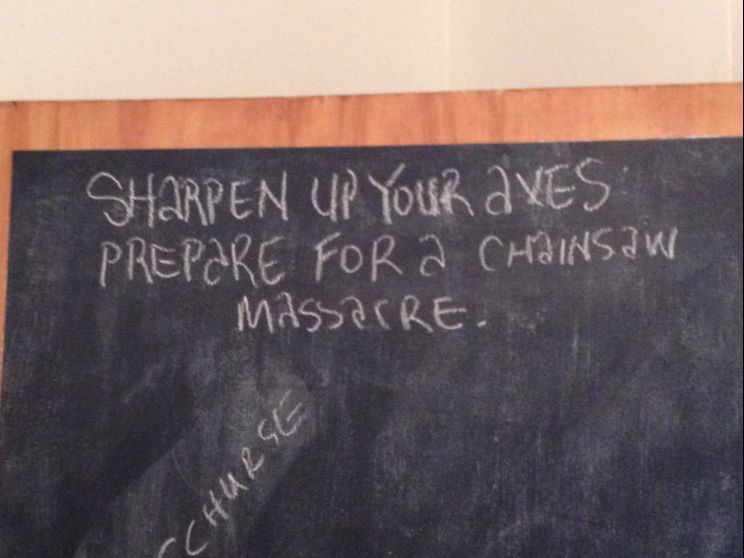 SHARPEN UP YOUR AXES:
PREPARE FOR A CHAINSAW
MASSACRE.